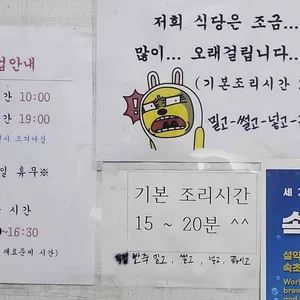 업안내
간 10:00
간 19:00
시 조기마감
일 휴무※
시간
~16:30
재료준비 시간)
저희 식당은 조금...
많이... 오래걸립니다...
(기본조리시간
밀고-썰고-넣고-
기본 조리시간
15 ~ 20분 ^^
반죽 밀고, 썰고, 넣고,
세계
속
설악
속초
World
brew